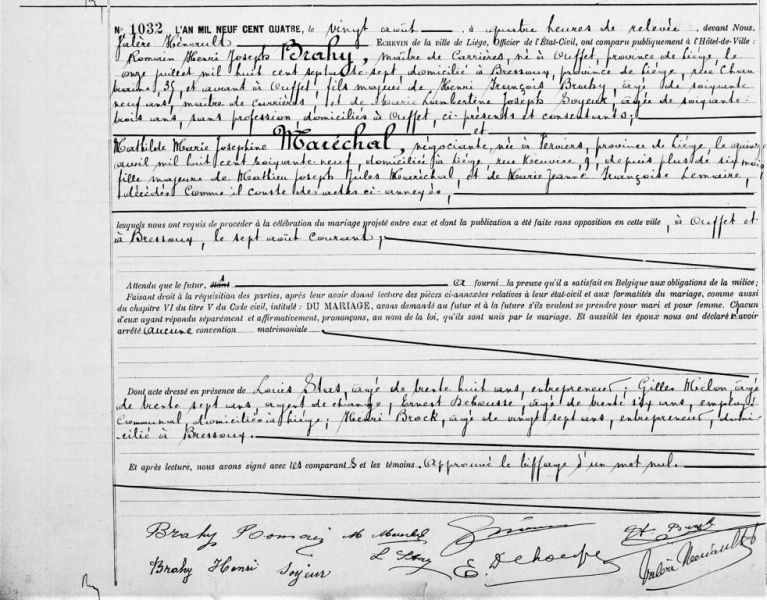 N° 1032 L'AN MIL NEUF CENT QUATRE, le vingt août à quatre heures de relevée, devant Nous,
Valère Hénault ECHEVIN de la ville de Liége, Officier de l'État-Civil, ont comparu publiquement à l'Hôtel-de-Ville :
Romain Henri Joseph Brahy, maître de Carrières, né à Ouffet, province de Liège, le
onze juillet mil huit cent septante sept, domicilié à Bressoux, province de Liège, rue
35 et avant à Ouffet, fils majeur de Henri François Brahy, âgé de soixante
neuf ans, maître de carrières, et de Marie Lambertine Joseph Soyeur, âgée de soixante
trois ans, sans profession, domiciliés à Ouffet, ci-présents et consentants;
et
Mathilde Marie Josephine Maréchal, négociante, née à Verviers, province de Liège, le quinze
avril mil huit cent soixante-neuf, domiciliée à Liège rue 9, depuis plus de six mois
fille majeure de Mathieu Joseph Jules Maréchal, et de Marie Jeanne Françoise Lemaire,
décédés comme il conste des actes ci-annexés,
lesquels nous ont requis de procéder à la célébration du mariage projeté entre eux et dont la publication a été faite sans opposition en cette ville, à Ouffet et
à Bressoux, le sept août courant;
Attendu que le futur, étant a fourni la preuve qu'il a satisfait en Belgique aux obligations de la milice;
Faisant droit à la réquisition des parties, après leur avoir donné lecture des pièces ci-annexées relatives à leur état-civil et aux formalités du mariage, comme aussi
du chapitre VI du titre V du Code civil, intitulé : DU MARIAGE, avons demandé au futur et à la future s'ils veulent se prendre pour mari et pour femme. Chacun
d'eux ayant répondu séparément et affirmativement, prononçons, au nom de la loi, qu'ils sont unis par le mariage. Et aussitôt les époux nous ont déclaré n'avoir
arrêté aucune convention matrimoniale
Dont acte dressé en présence de Louis Stas, âgé de trente huit ans, entrepreneur; Gilles Miclon, âgé
de trente sept ans, agent de change; Ernest Dehousse, âgé de trente six ans, employé
Communal, domiciliés à Liège; Henri Brock, âgé de vingt sept ans, entrepreneur, domi-
cilié à Bressoux.
Et après lecture, nous avons signé avec les comparants et les témoins. Approuvé le biffage d'un mot nul.
Brahy Romain M Marechal
Brahy Henri Soyeur L Stas E. Dehousse Valère Hénault